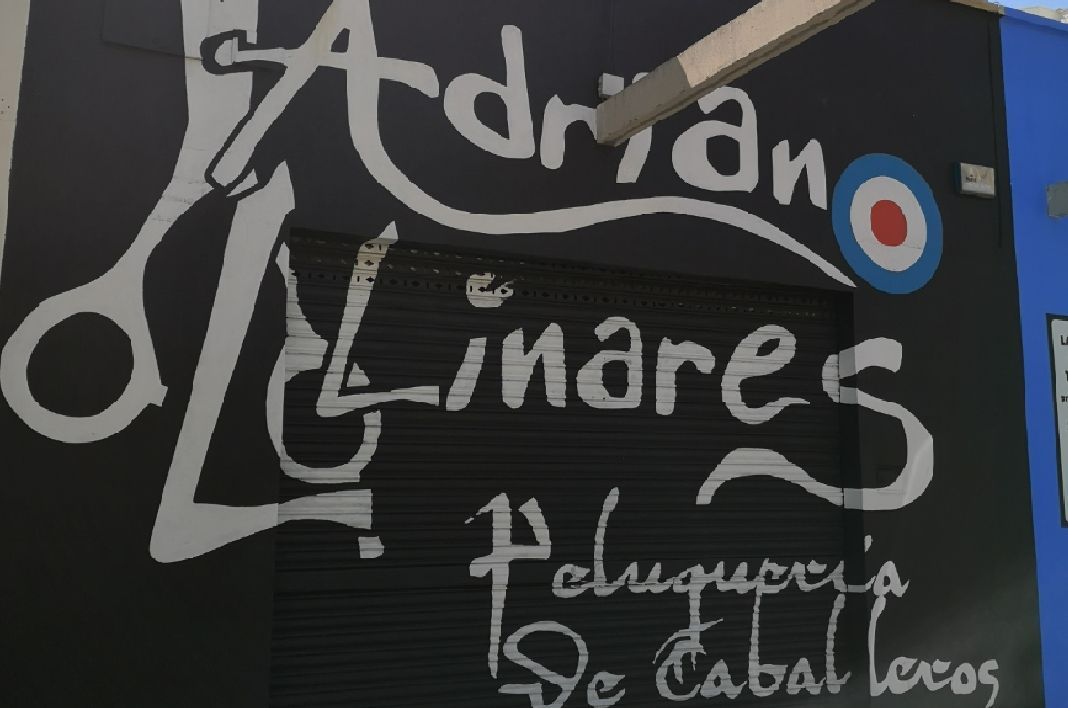 Adrian
Linares
Peluquería
De Caballeros